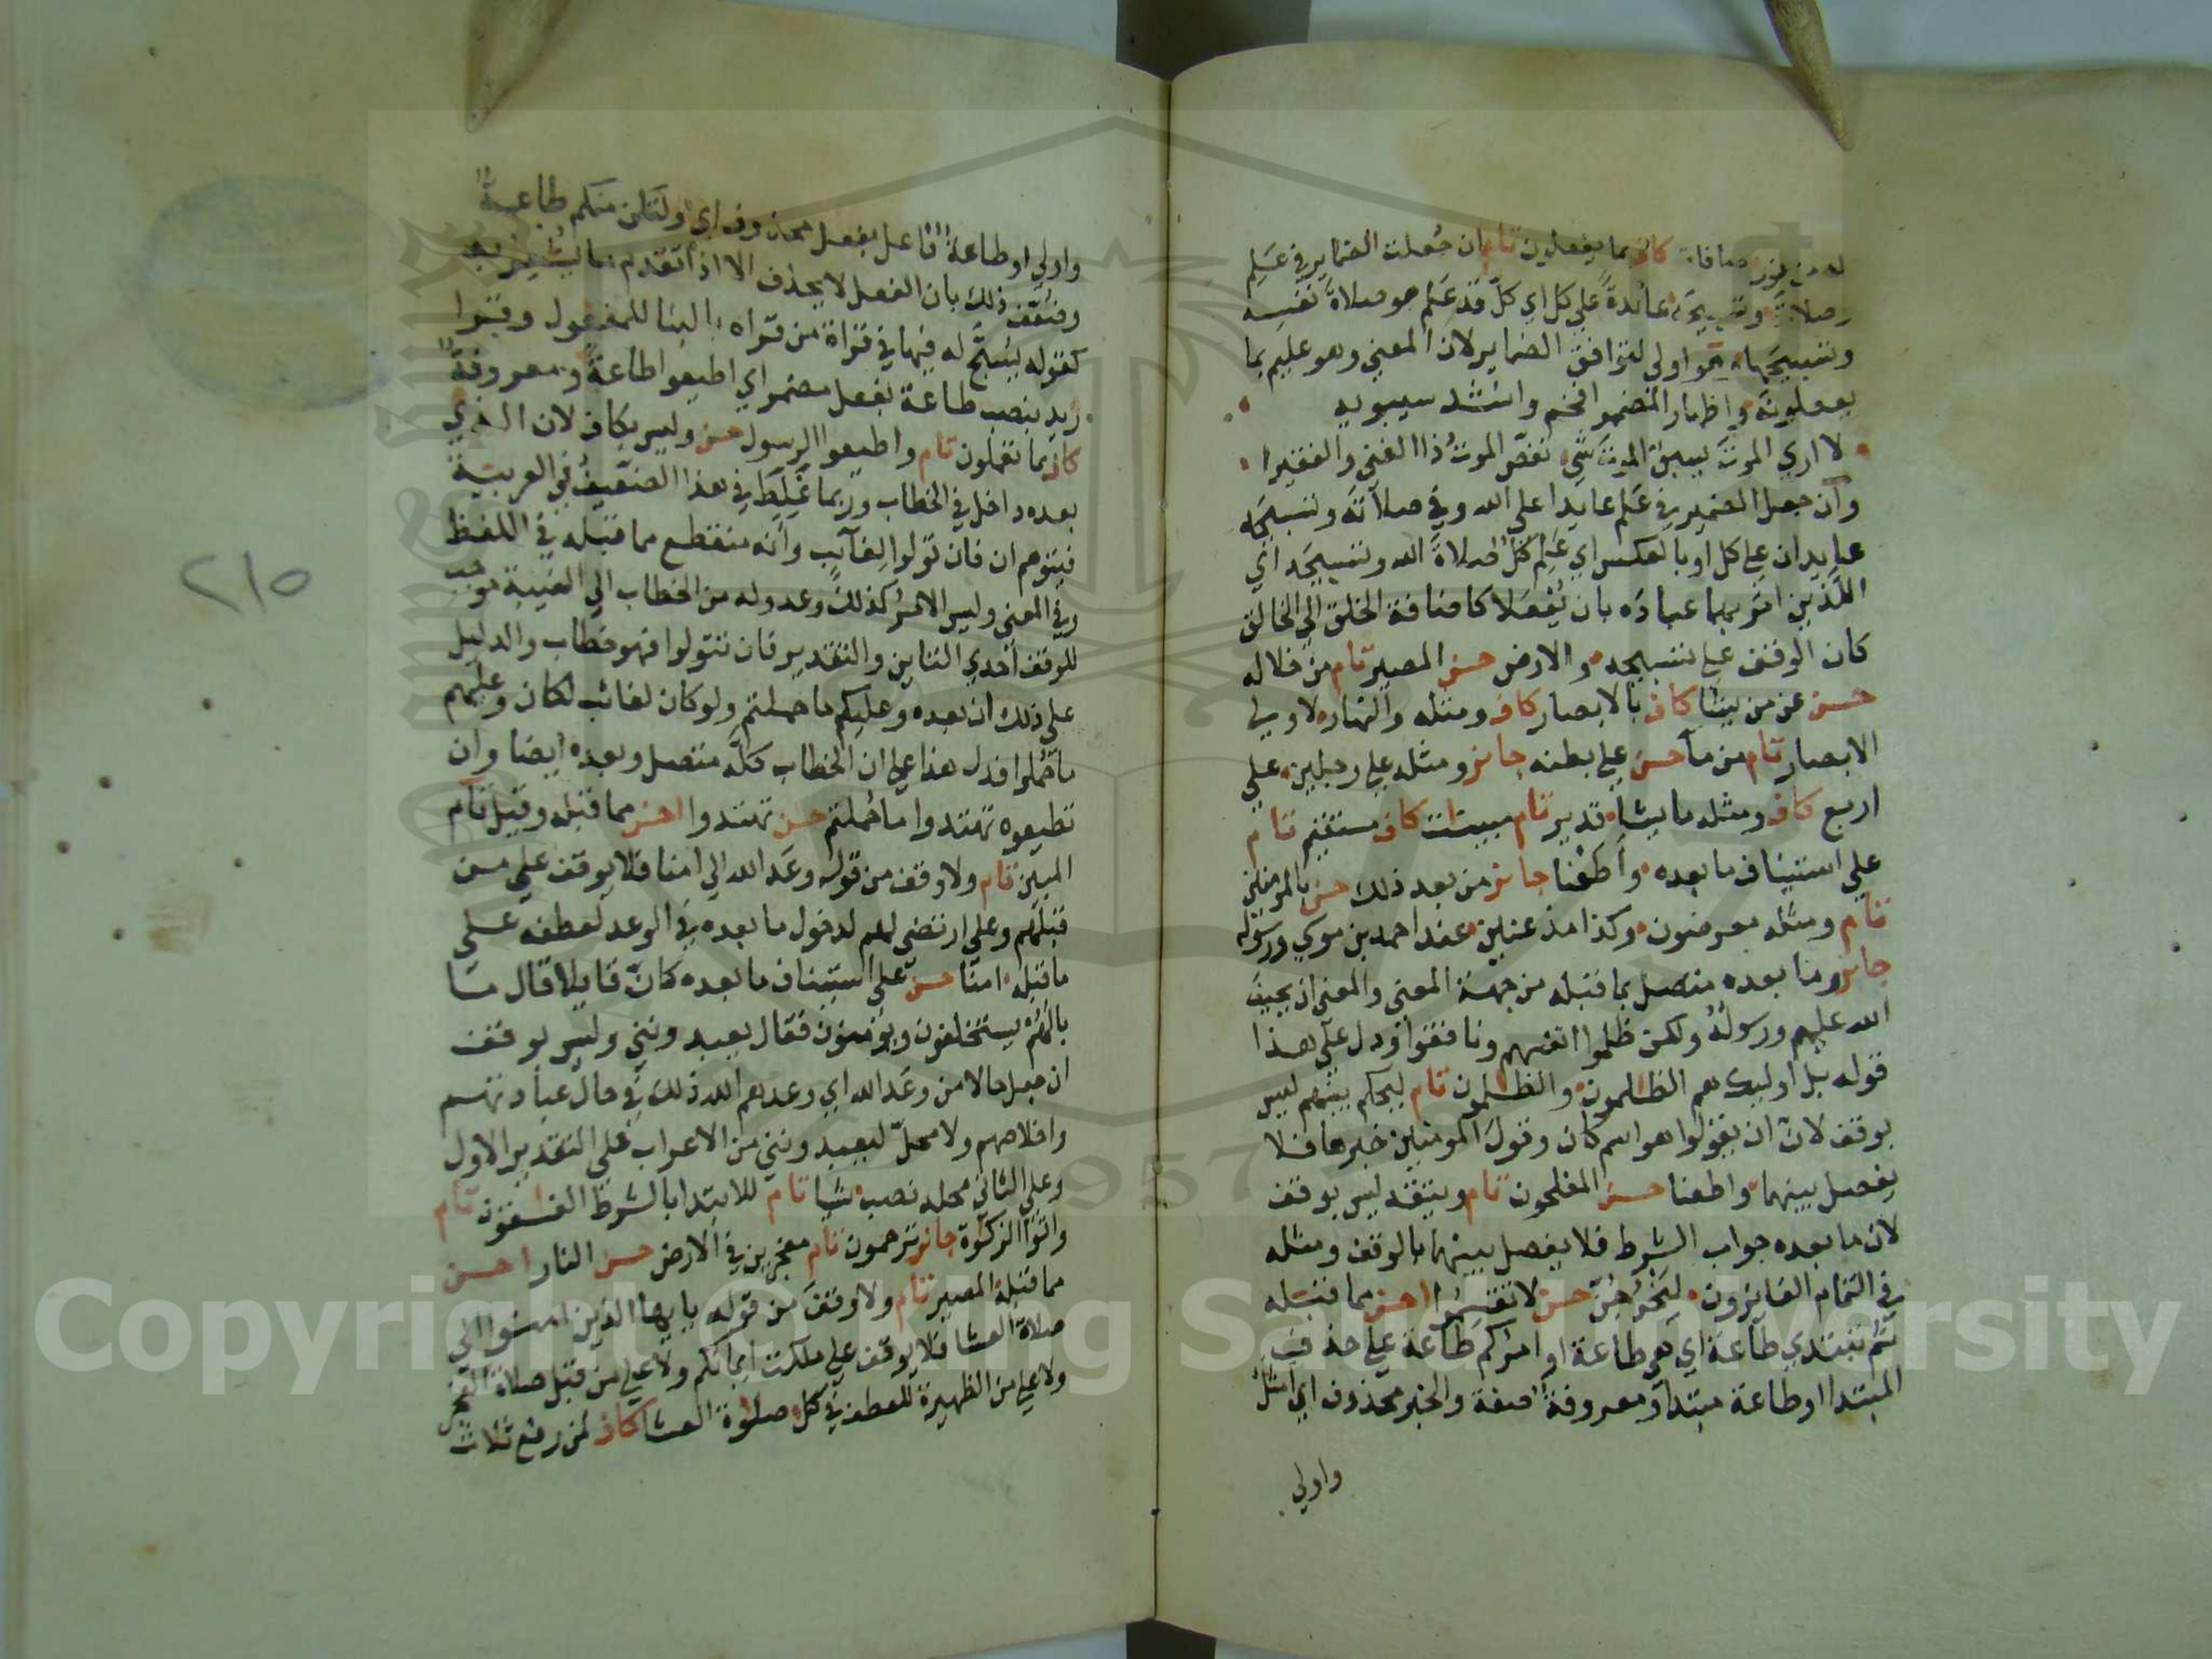 له من نور صافات كاف بما يفعلون تام ان جُعلت الضماير في عَلِم
صلاته وتسبيحه عائدة علي كل اي كلّ قد عَلم هو صلاة نفسه
وتسبيحها وهو اولي لتوافق الضماير لان المعني وهو عليم بما
يفعلونه واظهار المضمر افخم وانشد سيبويه
لا اري الموت يسبق الموت شي نغص الموت ذا الغني والفقيرا
وان جعل الضمير في علم عايدا علي الله وفي صلاته وتسبيحه
عايدان علي كل او بالعكس اي عَلِم كلٌّ صلاة الله وتسبيحه اي
اللذين امر بهما عباده بان يُفْعَلا كاضافة الخلق الي الخالق
كان الوقف علي تسبيحه والارض حسن المصير تام من خلاله
حسن عن من يشا كاف بالابصار كاف ومثله والنهار لاولي
الابصار تام من مآ حسن علي بطنه جائز ومثله علي رجلين علي
اربع كاف ومثله ما يشا قدير تام مبينات كاف مستقيم تام
علي استيناف ما بعده واطعنا جائز من بعد ذلك حسن بالمومنين
تام ومثله معرضون وكذا مذعنين عند احمد بن موسي ورسوله
جائز وما بعده متصل بما قبله من جهة المعني والمعني ان يحيف
الله عليهم ورسولُهُ ولكن ظلموا انفسهم ونافقوا ودل علي هذا
قوله بل اوليك هم الظلمون والظلمون تام ليحكم بينهم ليس
بوقف لان ان يقولوا هو اسم كان وقولَ المومنين خبرها فلا
يفصل بينهما واطعنا حسن المفلحون تام ويتقه ليس بوقف
لان ما بعده جواب الشرط فلا يفصل بينهما بالوقف ومثله
في التمام الفايزون ليخرجُنّ حسن لا تقسموا احسن مما قبله
ثم تبتدي طاعة اي هي طاعة او امركم طاعة علي حذف
المبتدا او طاعة مبتدا ومعروفة صفة والخبر محذوف اي امثل
واولي
واولي او طاعة فاعل بفعل محذوف اي ولتكن منكم طاعة
وضُعّف ذلك بان الفعل لا يحذف الا اذا تقدم ما يُشعر به
كقوله يُسَبَّح له فيها في قراة من قراه بالبنا للمفعول وقرا
زيد بنصب طاعة بفعل مضمر اي اطيعوا طاعةً ومعروفةٌ
كاف بما تعملون تام واطيعوا الرسول حسن وليس بكاف لان الذي
بعده داخل في الخطاب وربما غلط في هذا الضعيف في العربية
فيتوهم ان فان تولوا لغآيب وانه منقطع مما قبله في اللفظ
وفي المعني وليس الامر كذلك وعدوله من الخطاب الي الغيبة موجب
للوقف احدي التاين والتقدير فان تتولوا فهو خطاب والدليل
علي ذلك ان بعده وعليكم ما حملتم ولو كان لغائب لكان وعليهم
ما حُملوا فدل هذا علي ان الخطاب كله متصل وبعده ايضا وان
تطيعوه تهتدوا ما حُملتم حسن تهتدوا احسن مما قبله وقيل تام
المبين تام ولا وقف من قوله وعَد الله الي امنا فلا يوقف علي من
قبلهم وعلي ارتضي لهم لدخول ما بعده في الوعد لعطفه علي
ما قبله امنا حسن علي استيناف ما بعده كانّ قايلا قال ما
بالهُمْ يستخلفون ويومنون فقال يعبدونني وليس بوقف
ان جعل حالا من وعَد الله اي وعدهم الله ذلك في حال عبادتهم
واخلاصهم ولا محلّ ليعبدونني من الاعراب علي التقدير الاول
وعلي الثاني محله نصب شيا تام للابتدا بالشرط الفسقون تام
واتوا الزكوة جائز ترحمون تام معجزين في الارض حسن النار احسن
مما قبله المصير تام ولا وقف من قوله يايها الذين امنوا الي
صلاة العشا فلا يوقف علي ملكت ايمانكم ولا علي من قبل صلاة الفجر
ولا علي من الظهيرة للعطف في كل صلوة العشا كاف لمن رفع ثلاث
٢١٥
Copyright © King Saud University
1957